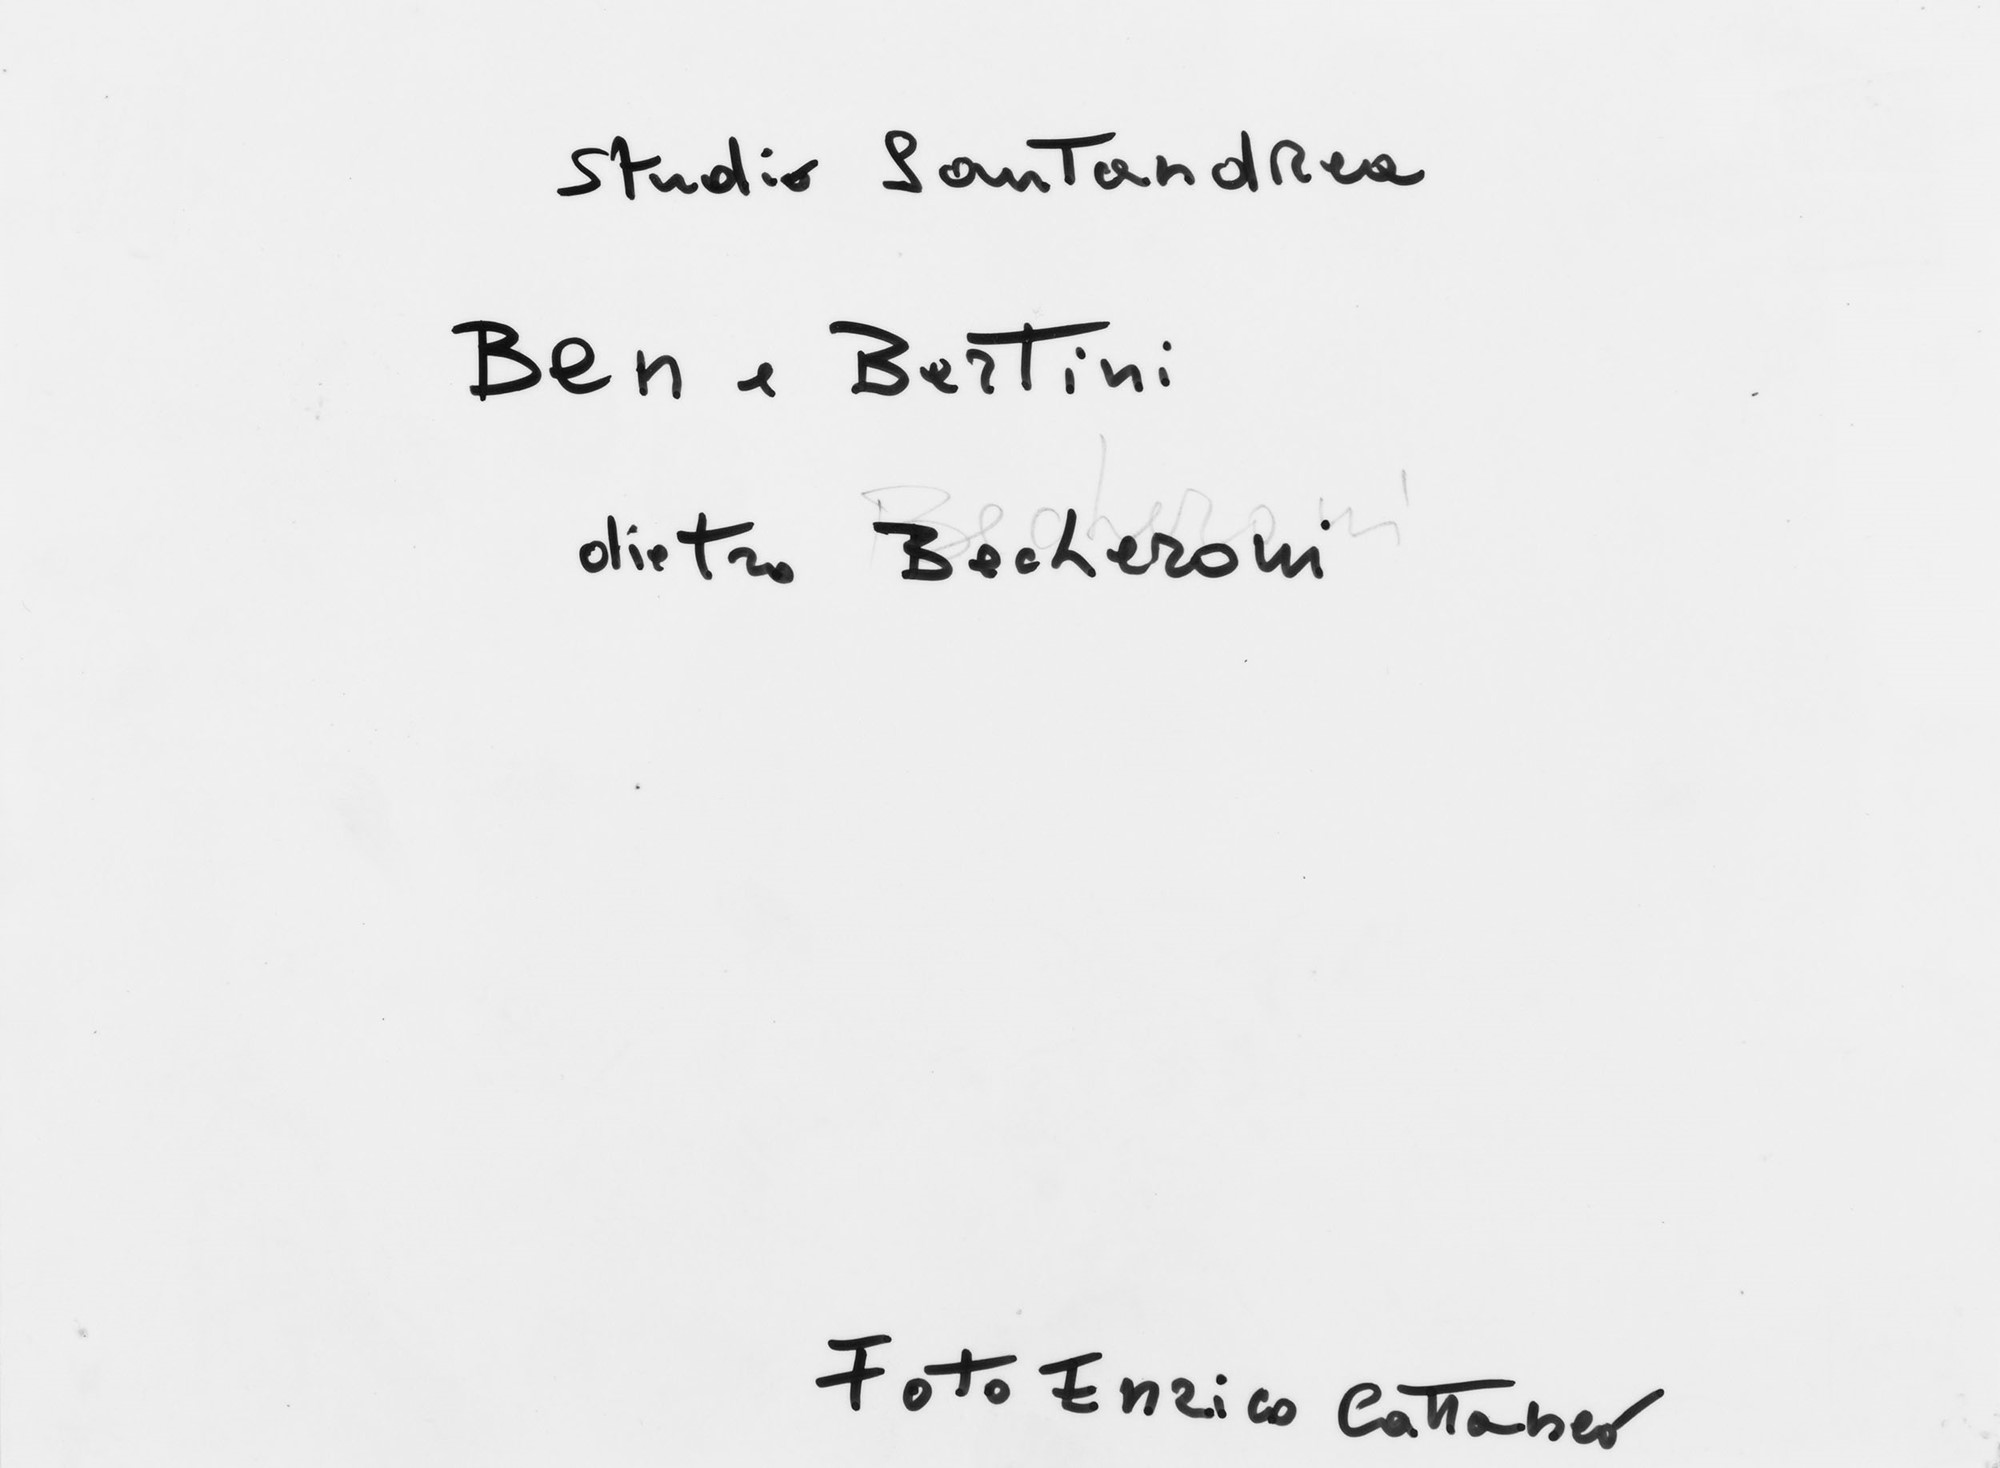 Studio Santandrea
Ben e Bertini
Becheroni
dietro Becheroni
Foto Enrico Cattaneo